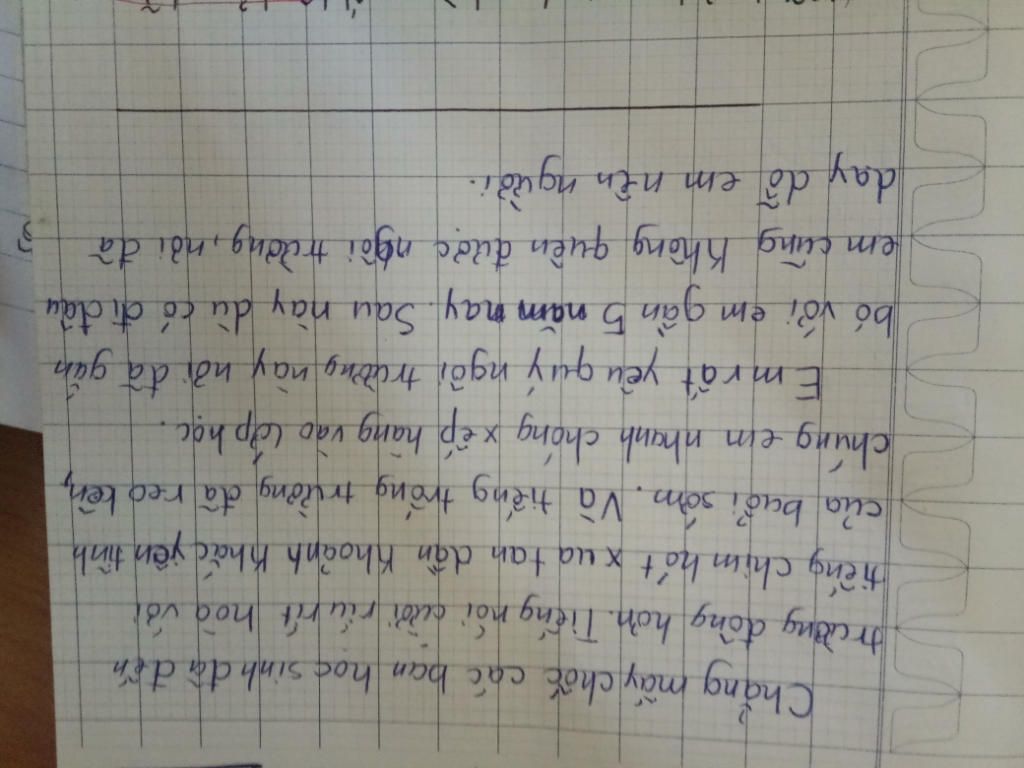 Chẳng mấy chốc các bạn học sinh đã đến
trường đông hơn. Tiếng nói cười ríu rít hoà với
tiếng chim hót xua tan dần khoảnh khắc yên tĩnh
của buổi sớm. Và tiếng trống trường đã reo lên,
chúng em nhanh chóng xếp hàng vào lớp học.
Em rất yêu quý ngôi trường này nơi đã gắn
bó với em gần 5 năm nay. Sau này dù có đi đâu
em cũng không quên được ngôi trường, nơi đã
dạy dỗ em nên người.